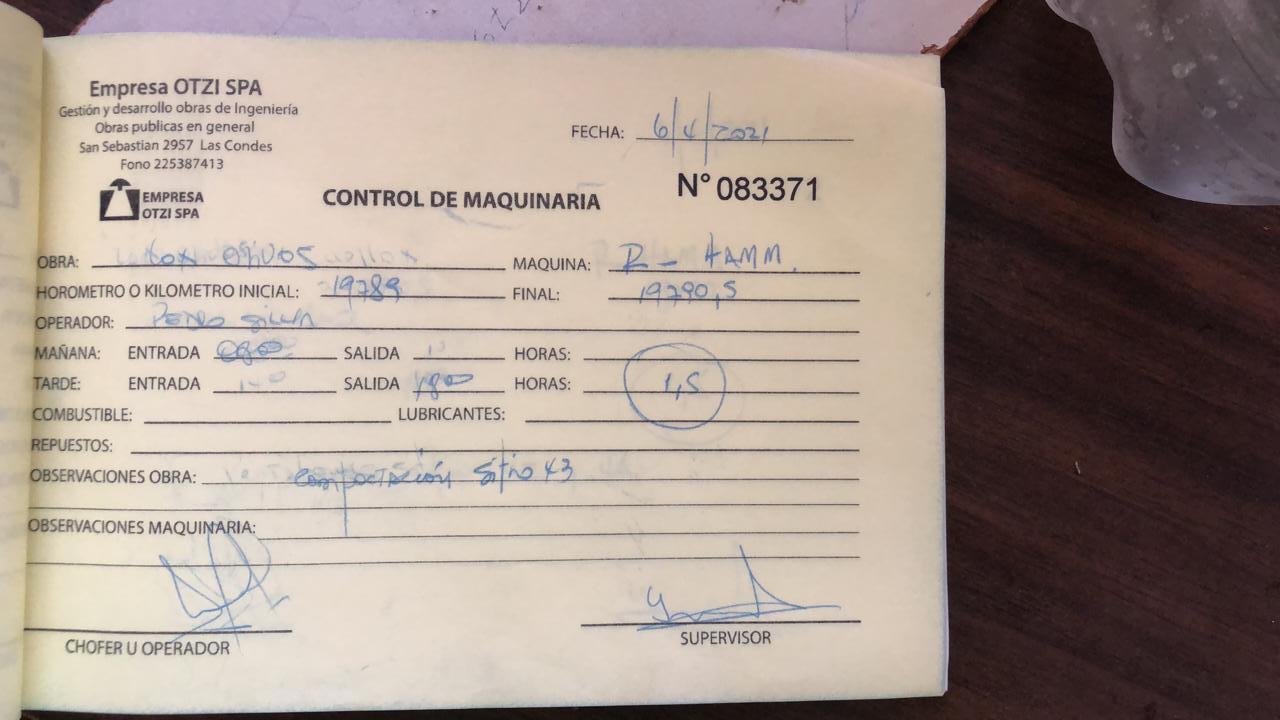 Empresa OTZI SPA
Gestión y desarrollo obras de Ingeniería
Obras publicas en general
San Sebastian 2957 Las Condes
Fono 225387413
FECHA: 6/4/2021
N° 083371
EMPRESA
OTZI SPA
CONTROL DE MAQUINARIA
OBRA: MAQUINA: R - HAMM.
HOROMETRO O KILOMETRO INICIAL: 19789 FINAL: 19790,5
OPERADOR: PEDRO SILVA
MAÑANA: ENTRADA 0800 SALIDA HORAS:
TARDE: ENTRADA SALIDA 1800 HORAS: 1,5
COMBUSTIBLE: LUBRICANTES:
REPUESTOS:
OBSERVACIONES OBRA: compactación Sitio 43
OBSERVACIONES MAQUINARIA:
CHOFER U OPERADOR SUPERVISOR